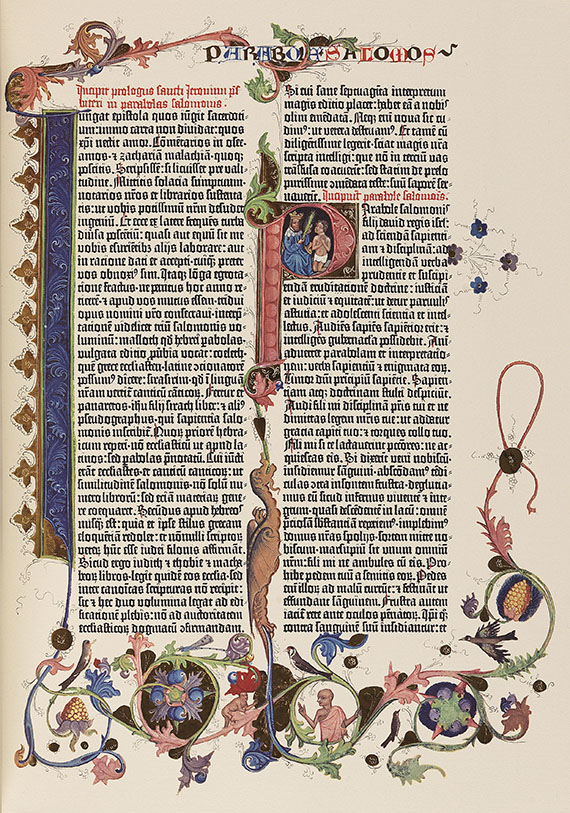 PARABOLE SALOMOS
Incipit prologus sancti Jeronimi p̄s
biteri in parabolas salomonis.
Jungat epistola quos iūgit sacerdoti-
um: immo carta non diuidat: quos
xp̄i nectit amor. Cōmētarios in osee.
amos ⁊ zachariam malachiā· quoq̄
poscitis. Scripsissē: si licuisset pre vali-
tudine. Mittitis solacia sumptuum.
notarios nr̄os et librarios sustenta-
tis: ut vobis potissimū nr̄m desudet
ingeniū. Et ecce ex latere frequēs turba
diuersa poscētiū: quasi aut equū sit me
vobis esuriētib⁹ alijs laborare: aut
in ratione dati et accepti· cuiq̄ preter
vos obnoxi⁹ sim. Itaq̄ lōga egrota-
tione fractus· ne penitus hoc anno re-
ticerē· ⁊ apud vos mutus essem· tridui
opus nomini vr̄o consecraui· interp̄-
tationē videlicet triū salomonis vo-
luminū:
vulgata editio
ten·
possum⁹ dicere: sirasirim· qd̄ ī līguā
nr̄am vertit̄ canticū cāticoȝ. Fertur et
panaretos· ihū filij sirach liber: ⁊ ali⁹
pseudographus· qui sapientia salo-
monis inscribit̄. Quoȝ priorē hebra-
icum repperi· nō ecclīasticū ut apud la-
tinos: sed pabolas p̄notatū. Cui iūcti
erāt ecclīastes· et canticū canticoȝ: ut
similitudinē salomonis· nō solū nu-
mero librorū: sed etiā materiaȝ gene-
re coequaret. Secūdus apud hebreos
nusq̄ est: quia et ipse stilus grecam
eloquētiā redolet: et nōnulli scriptoȝ
veteȝ hūc esse iudei filonis affirmāt.
Sicud ergo iudith ⁊ thobie ⁊ macha-
beoȝ libros· legit quidē eos ecclīa· sed
inter canonicas scripturas nō recipit:
sic ⁊ hec duo volumina legat ad edi-
ficationē plebis: nō ad auctoritatem
ecclīasticoȝ dogmatū cōfirmandam.
Si cui sane septuagīta interpretum
magis editio placet: habet eā a nobis
olim emēdatā. Neq̄ eni noua sic cu-
dim⁹: ut vetera destruam⁹. Et tamē cū
diligētissime legerit· sciat magis nr̄a
scripta intelligi: que nō in terciū vas
trāsfusa coacuerīt: sed statim de prelo
purissime cōmēdata teste: suū saporē ser-
uauerīt. Incipiūt parabole salomonis.
Parabole salomonis
filij dauid regis isrl̄:
ad sciendā sapienti-
am ⁊ disciplinā: ad
intelligendā verba
prudentie et suscipi-
endā eruditationē doctrine: iusticiam
et iudiciū ⁊ equitatē: ut detur paruulis
astutia: et adolescenti scientia et intel-
lectus. Audiēs sapiēs sapiētior erit: ⁊
intelligēs gubernacla possidebit. Ani-
aduertet parabolam et interpretatio-
nem: verba sapientiū ⁊ enigmata eoȝ.
Timor dn̄i principiū sapiētie. Sapien-
tiam atq̄ doctrinam stulti despiciūt.
Audi fili mi disciplinā pr̄is tui et ne
dimittas legem mr̄is tue: ut addatur
gratia capiti tuo: ⁊ torques collo tuo.
Fili mi si te lactauerint p̄ctōres: ne ac-
quiescas eis. Si dixerīt veni nobiscū·
insidiemur sāguini· abscōdam⁹ tedi-
culas cōtra insontem frustra· deglutia-
mus eū sicud infernus viuentē ⁊ inte-
grum· quasi descēdentē in lacū: omnē
p̄ciosā substātiā reperiem⁹· implebim⁹
domus nr̄as spolijs· sortem mitte no-
biscum· marsupiū sit unum omniū
nr̄um: fili mi ne ambules cū eis. Pro-
hibe pedem tuū a semitis eoȝ. Pedes
eni illoȝ ad malū currūt: ⁊ festināt ut
effundant sāguinem. Frustra autem
iacit̄ rete ante oculos pēnatoȝ. Ipi q̄
contra sanguinē suū insidiantur: et